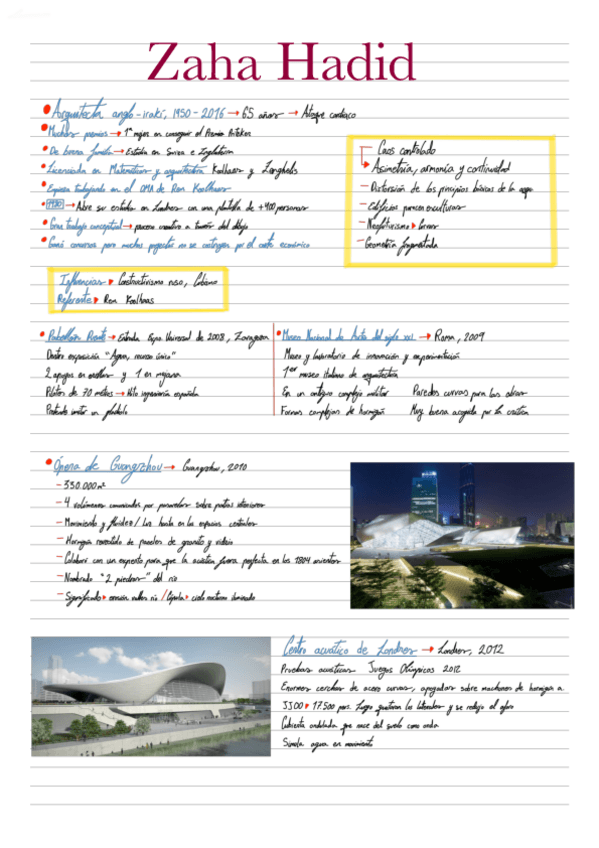 Zaha Hadid
Arquitecta anglo-irakí, 1950-2016 → 65 años → Ataque cardíaco
Muchos premios → 1ª mujer en conseguir el Premio Pritzker
De buena familia → Estudia en Suiza e Inglaterra
Licenciada en Matemáticas y arquitectura Koolhaas y Zenghelis
Empieza trabajando en el OMA de Rem Koolhaas
1980 → Abre su estudio en Londres con una plantilla de +400 personas
Gran trabajo conceptual → proceso creativo a través del dibujo
Ganó concursos pero muchos proyectos no se construyen por el coste económico
Caos controlado
Asimetría, armonía y continuidad
- Distorsión de los principios básicos de la
- Edificios parecen esculturas
- Neofuturismo formas
- Geometría fragmentada
Influencias Constructivismo ruso, Cubismo
Referente Rem Koolhaas
Pabellón Puente → Entrada Expo Universal de 2008, Zaragoza
Dentro exposición "Agua, recurso único"
2 apoyos en orillas y 1 en
Pilotes de 70 metros → Hito ingeniería española
Pretende imitar un gladiolo
Museo Nacional de Arte del siglo XXI → Roma, 2009
Museo y laboratorio de innovación y experimentación
1er museo italiano de arquitectura
En un antiguo complejo militar Paredes curvas para las obras
Formas complejas de hormigón Muy buena acogida por la crítica
Ópera de Guangzhou → Guangzhou, 2010
- 330.000 m²
- 4 volúmenes comunicados por pasarelas sobre patios interiores
- Movimiento y fluidez / Luz hasta en los espacios centrales
- Hormigón revestido de paneles de granito y vidrio
- Colaboró con un experto para que la acústica fuera perfecta en los 1804 asientos
- Nombrado "2 piedras" del río
- Significado erosión valles río / Cúpula cielo nocturno iluminado
Centro acuático de Londres → Londres, 2012
Pruebas acuáticas Juegos Olímpicos 2012
Enormes cerchas de acero curvas, apoyadas sobre machones de hormigón a.
JJOO 17.500 pers. Luego quitaron los laterales y se redujo el aforo
Cubierta ondulada que nace del suelo como onda
Simula agua en movimiento